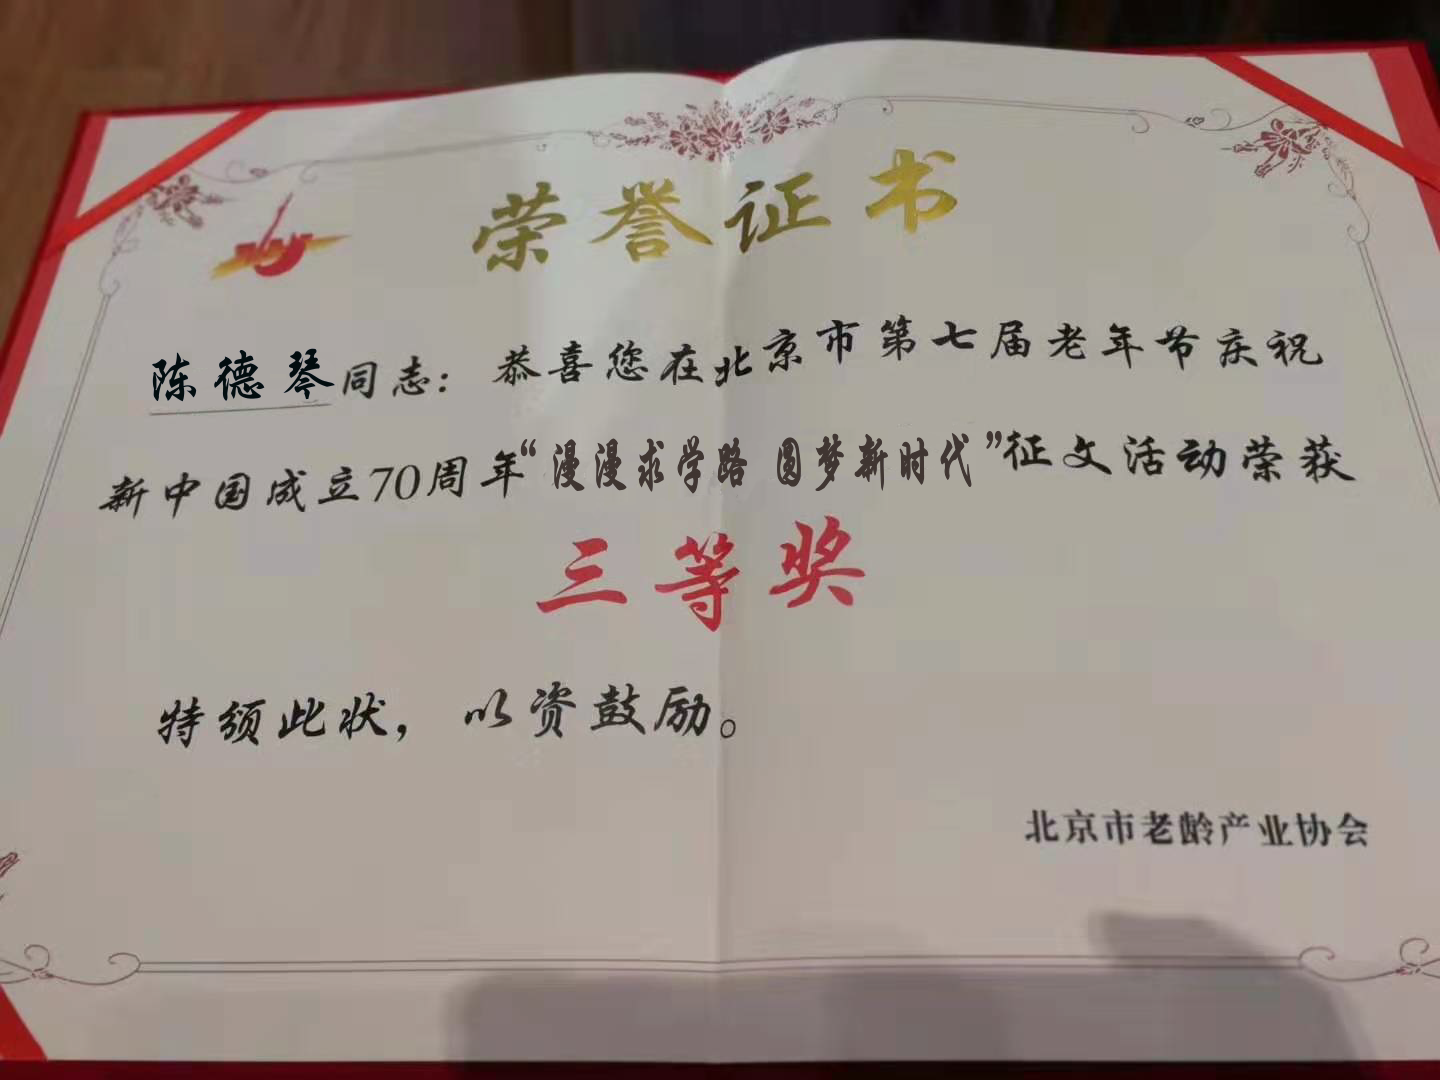 荣誉证书
陈德琴同志：恭喜您在北京市第七届老年节庆祝
新中国成立70周年“漫漫求学路 圆梦新时代”征文活动荣获
三等奖
特颁此状，以资鼓励。
北京市老龄产业协会